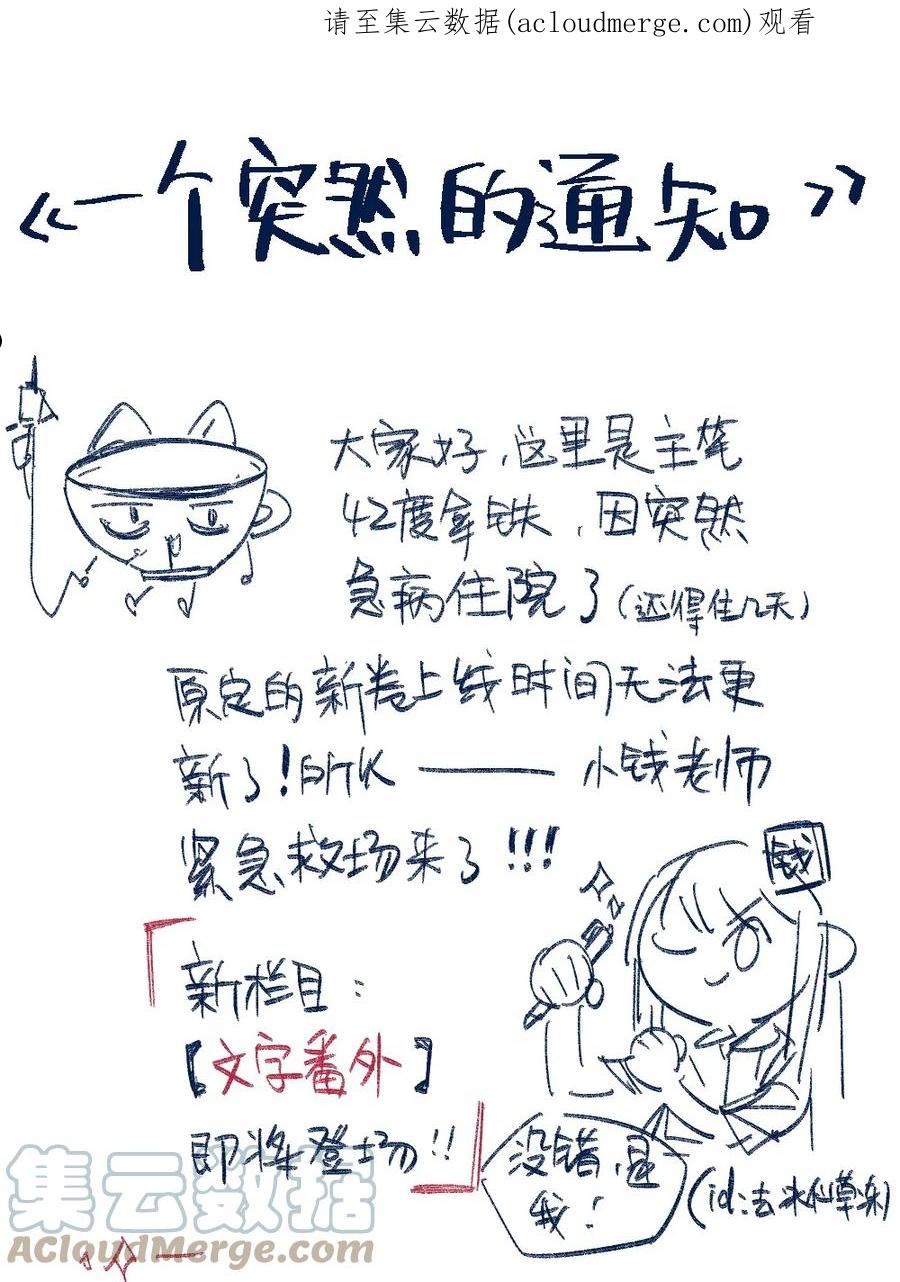 请至集云数据(acloudmerge.com)观看
《一个突然的通知》
大家好，这里是主笔
42度拿铁，因突然
急病住院了(还得住几天)
原定的新卷上线时间无法更
新了！所以——小钱老师
紧急救场来了!!!
钱
「新栏目：
【文字番外】
即将登场!!」
没错，是
我！
(id:去冰仙草冻)
集云数据
AcloudMerge.com